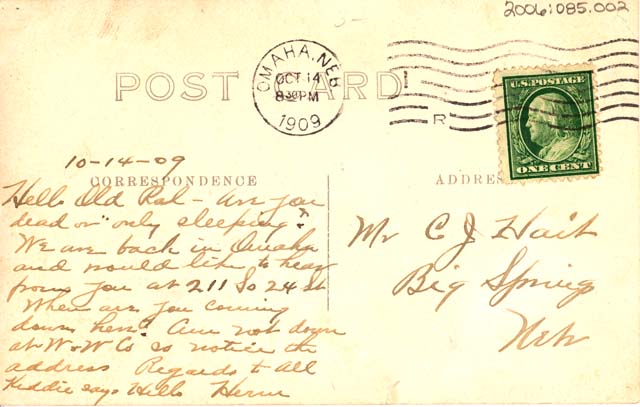 2006:085.002
OMAHA, NEB.
OCT 14
8 30 PM
1909
R
U.S. POSTAGE
ONE CENT
POST CARD
CORRESPONDENCE
ADDRESS
10-14-09
Hello Old Pal - Are you
dead or "only sleeping"?
We are back in Omaha
and would like to hear
from you at 211 So 24 St
When are you coming
down here? Am not down
at W-W Co so notice the
address Regards to All
Kiddie says Hello Herm
Mr C J Hait
Big Springs
Neb